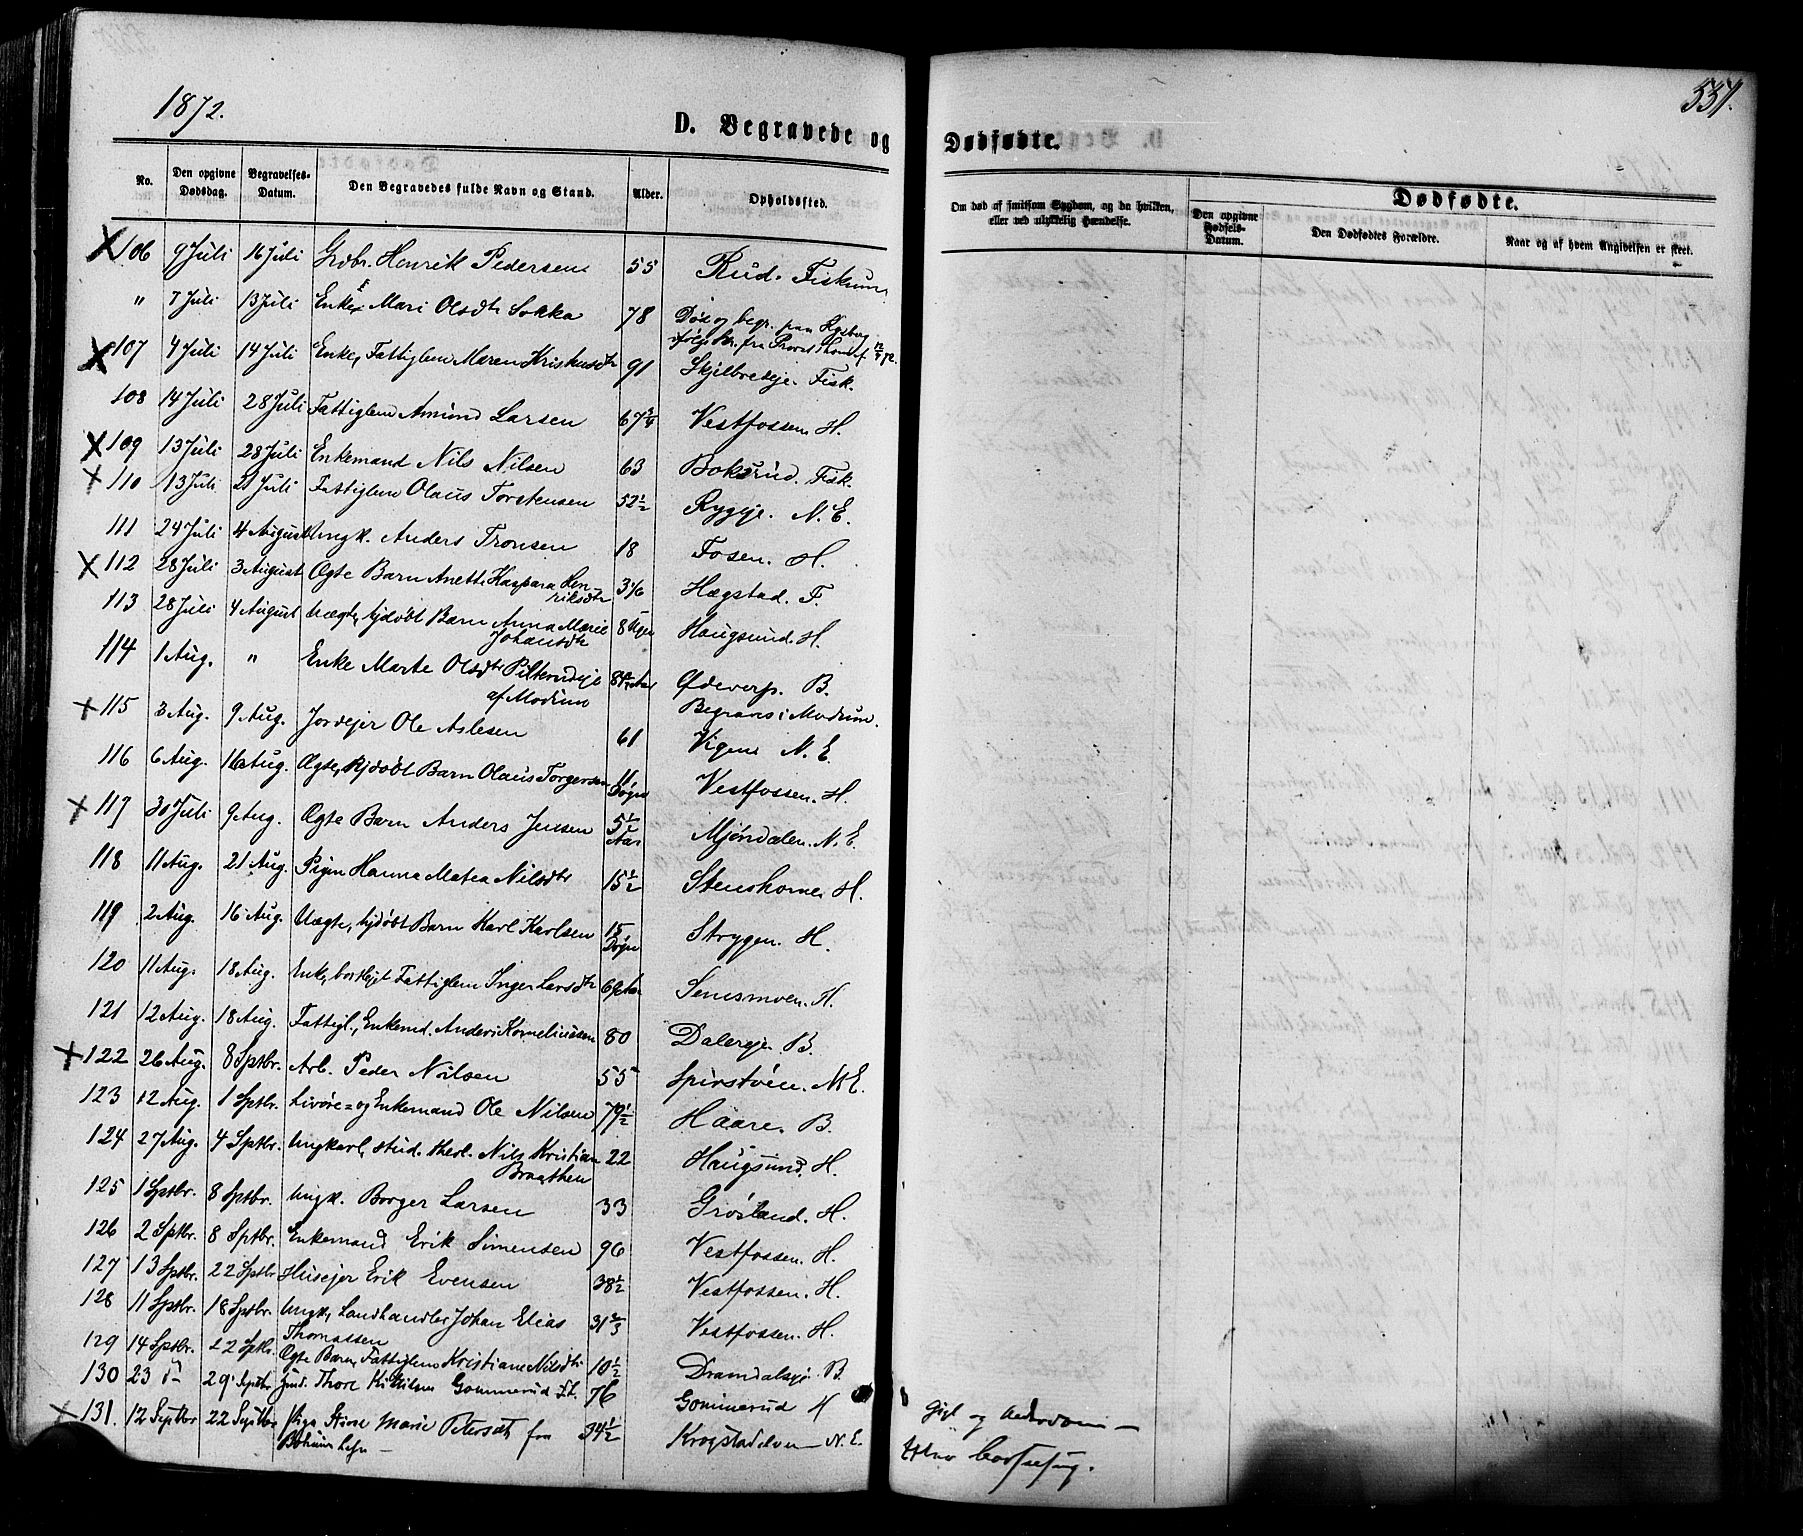 1872.
551.
D. Begravede og Dødfødte.
No. Den opgivne Dødsdag. Begravelses-Datum. Den Begravedes fulde Navn og Stand. Alder. Opholdssted. Om død af smitsom Sygdom, og da hvilken, eller ved ulykkelig Hændelse. Dødfødte. Den opgivne Fødsels-Datum. Den Dødfødtes Forældre. Naar og af hvem Angivelsen er skeet.
X 106 9 Juli 16 Juli Grdbr. Henrik Pedersen 55 Rud. Fiskum
" 7 Juli 13 Juli Enke Mari Olsdtr Sokka 78 Død og begr. paa Kgsberg
ifølge Skr. fra Provst
X 107 4 Juli 14 Juli Enke, Fattiglem Maren Kristensdtr 91 Skjelbredeje. Fisk.
108 14 Juli 28 Juli Fattiglem Amund Larsen 67 3/4 Vestfossen H.
X 109 13 Juli 28 Juli Enkemand Nils Nilsen 63 Boksrud. Fisk.
X 110 13 Juli 21 Juli Fattiglem Olaus Torstensen 52 1/2 Rygeje. N. E.
111 24 Juli 4 August Ungk. Anders Tronsen 18 Fosen. H.
X 112 28 Juli 3 August Ægte Barn Anette Kaspara Hen-
riksdtr 3 1/6 Hægstad. F.
113 28 Juli 4 August Uægte, hjdøbt Barn Anna Marie
Johansdtr 8 Uger Haugsund. H.
114 1 Aug. " Enke Marte Olsdtr Pilterudeje
af Modum 84 Aar Ødeverp. B.
Begraves i Modum.
X 115 3 Aug. 9 Aug. Jordejer Ole Aslesen 61 Vigen N. E.
116 6 Aug. 16 Aug. Ægte, hjdøbt Barn Olaus Torgersen 11 Døgn Vestfossen. H.
X 117 30 Juli 9 Aug. Ægte Barn Anders Jensen 5 1/2 Aar Mjøndalen. N. E.
118 11 Aug. 21 Aug. Pigen Hanna Matea Nilsdtr 15 1/2 Stenshorne H.
119 2 Aug. 16 Aug. Uægte, hjdøbt Barn Karl Karlsen 15 Døgn Strygen. H.
120 11 Aug. 18 Aug. Enke, bortlejet Fattiglem Inger Larsdtr Semsmoen. H.
121 12 Aug. 18 Aug. Fattigl., Enkemd. Anders Korneliussen 80 Dalereje B.
X 122 26 Aug. 8 Sptbr. Arb. Peder Nilsen 55 N. E.
123 12 Aug. 1 Sptbr. Livøre= og Enkemand Ole Nilsen 79 1/2 Haare. B.
124 27 Aug. 4 Sptbr. Ungkarl, stud. theol. Nils Kristian
Braathen 22 Haugsund. H.
125 1 Sptbr. 8 Sptbr. Ungk. Borger Larsen 33 Grøsland. H.
126 2 Sptbr. 8 Sptbr. Enkemand Erik Simensen 96 Vestfossen. H.
127 13 Sptbr. 22 Sptbr Husejer Erik Evensen 38 1/2 Vestfossen. H.
128 11 Sptbr. 18 Sptbr. Ungk, Landhandler Johan Elias
Thomassen 31 2/3 Vestfossen. H.
129 14 Sptbr. 22 Sptbr. Ægte Barn, Fattiglem Kristiane Nilsdtr 10 1/2 Dramdalseje. B
130 23 d 29 Septbr Thore Gommerud 76 Gommerud H
X 131. 12 Septbr 22 Septbr Pige Stine Marie Petersdt fra
34 1/2 Krogstadelven N. E. Gigt og